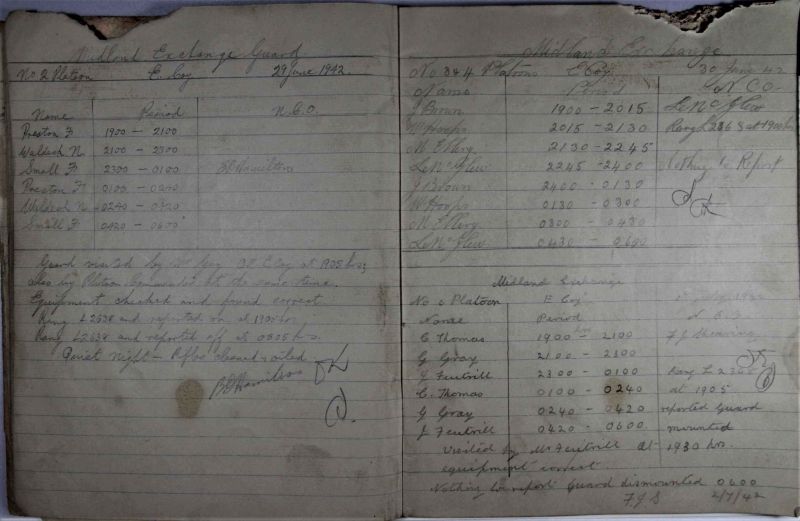 Midland Exchange Guard
No. 2 Platoon E. Coy 29 June 1942.
Name Period N.C.O.
Preston F 1900 - 2100
Waldach N 2100 - 2300
Small F 2300 - 0100 Hamilton
Preston F 0100 - 0240
N 0240 - 0420
Small F 0420 - 0600
Guard visited by Mr O.C. E Coy at 1905 hrs;
also by Platoon Commander at the same time.
Equipment checked and found correct
Rang L2638 and reported on at 1900 hrs
Rang L2638 and reported off at 0605 hrs.
Quiet Night - Rifles cleaned & oiled
Hamilton
Midland Exchange
No 3 & 4 Platoons E Coy 30 June 42
Name Period N.C.O.
J Brown 1900 - 2015
W Hoops 2015 - 2130 at 1900 hrs
M Ellery 2130 - 2245
2245 - 2400 Nothing to Report
J Brown 2400 - 0130
W Hoops 0130 - 0300
M Ellery 0300 - 0430
0430 - 0600
Midland Exchange
No Platoon E Coy
Name Period N.C.O.
C Thomas 1900 hrs - 2100 F J
G Gray 2100 - 2300
J Feutrill 2300 - 0100 Rang L 2300
C. Thomas 0100 - 0240 at 1905
G Gray 0240 - 0420 reported Guard
J Feutrill 0420 - 0600 mounted
Visited by Mr Feutrill at 1930 hrs.
equipment correct
Nothing to report Guard dismounted 0600
F.J.S 2/7/42